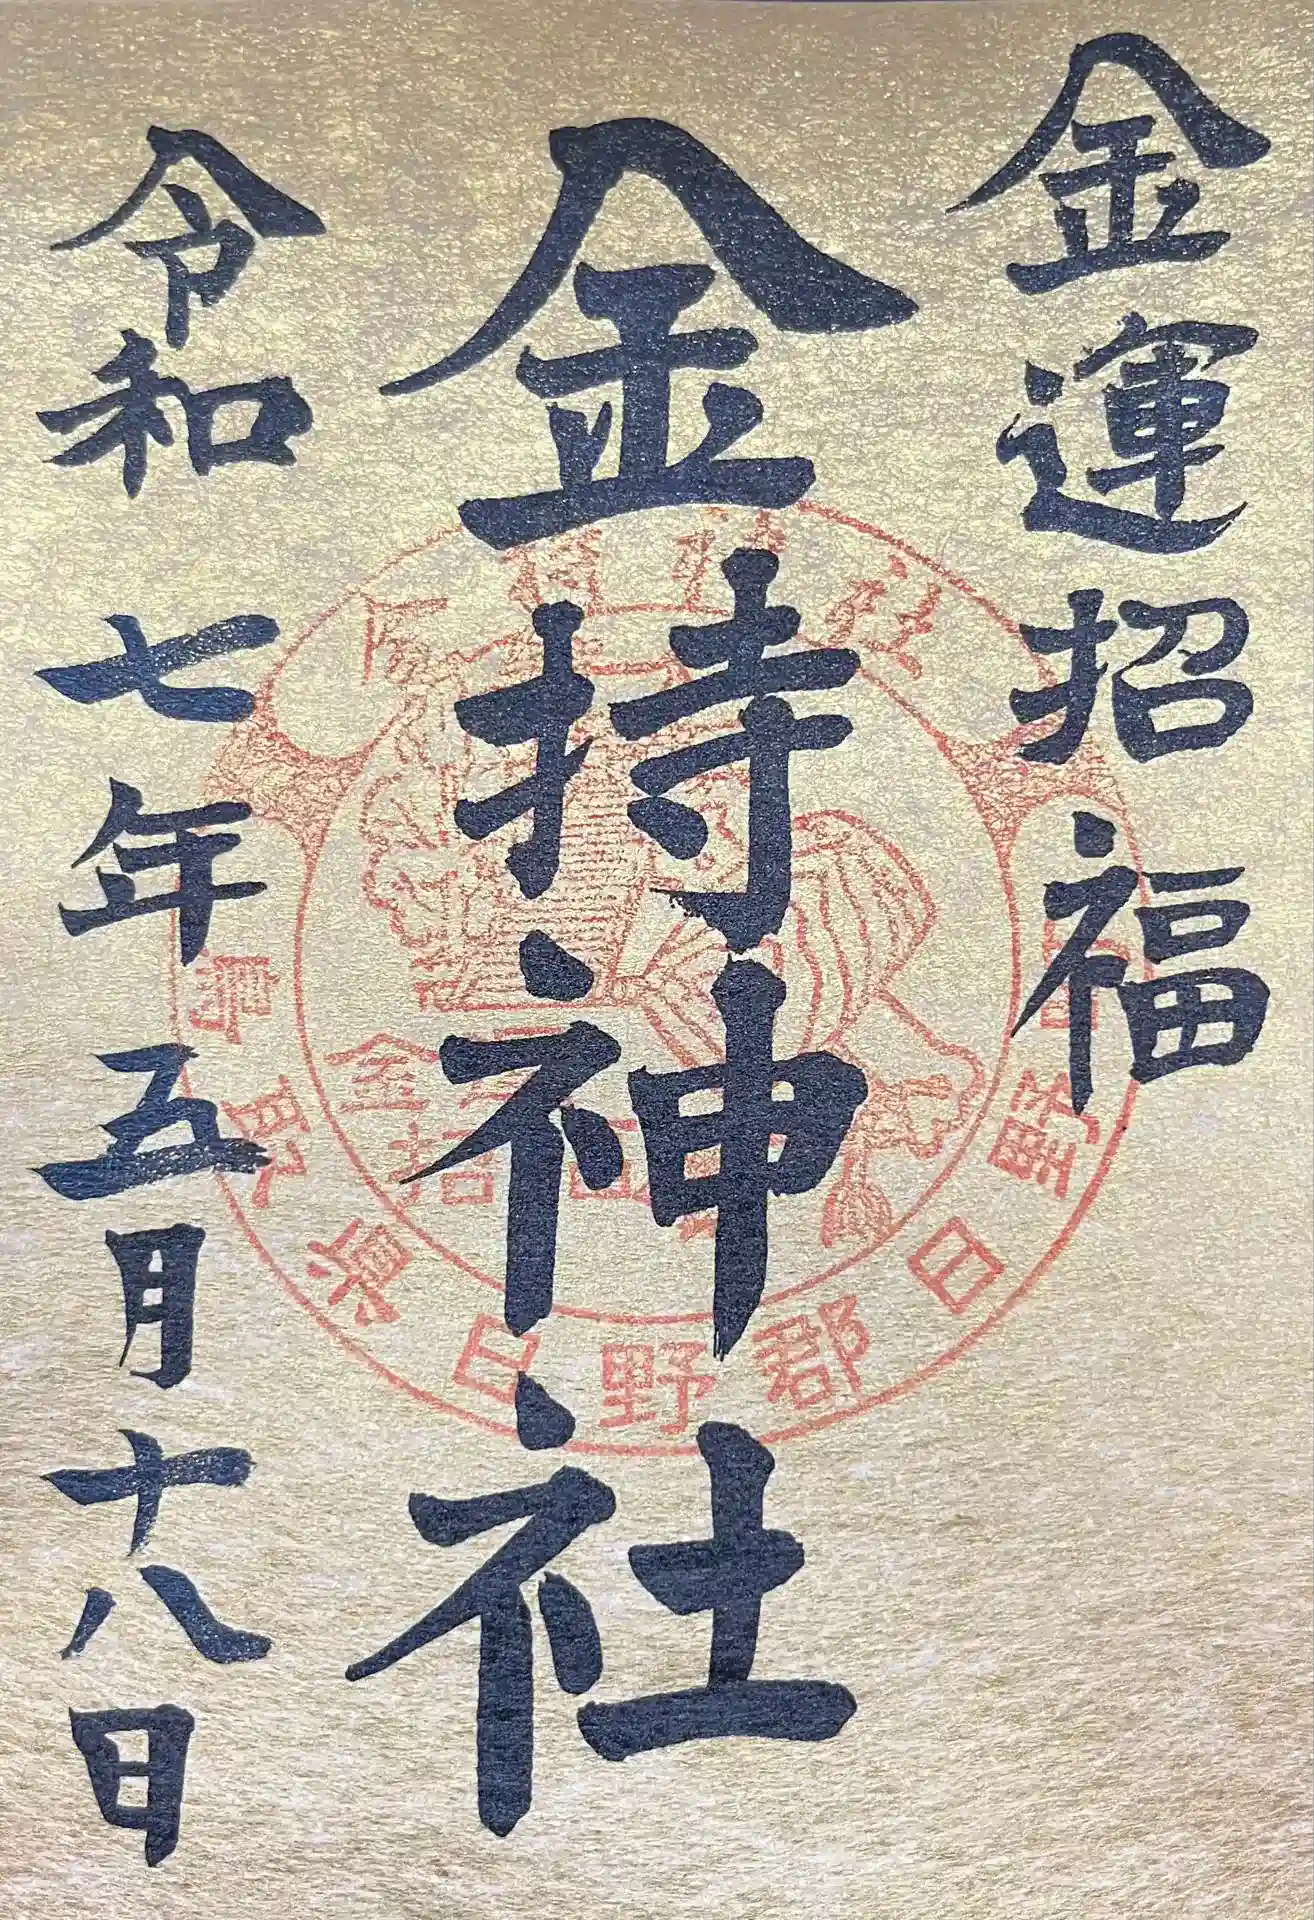 金運招福
金持神社
令和七年五月十八日
鳥取県日野郡日野町